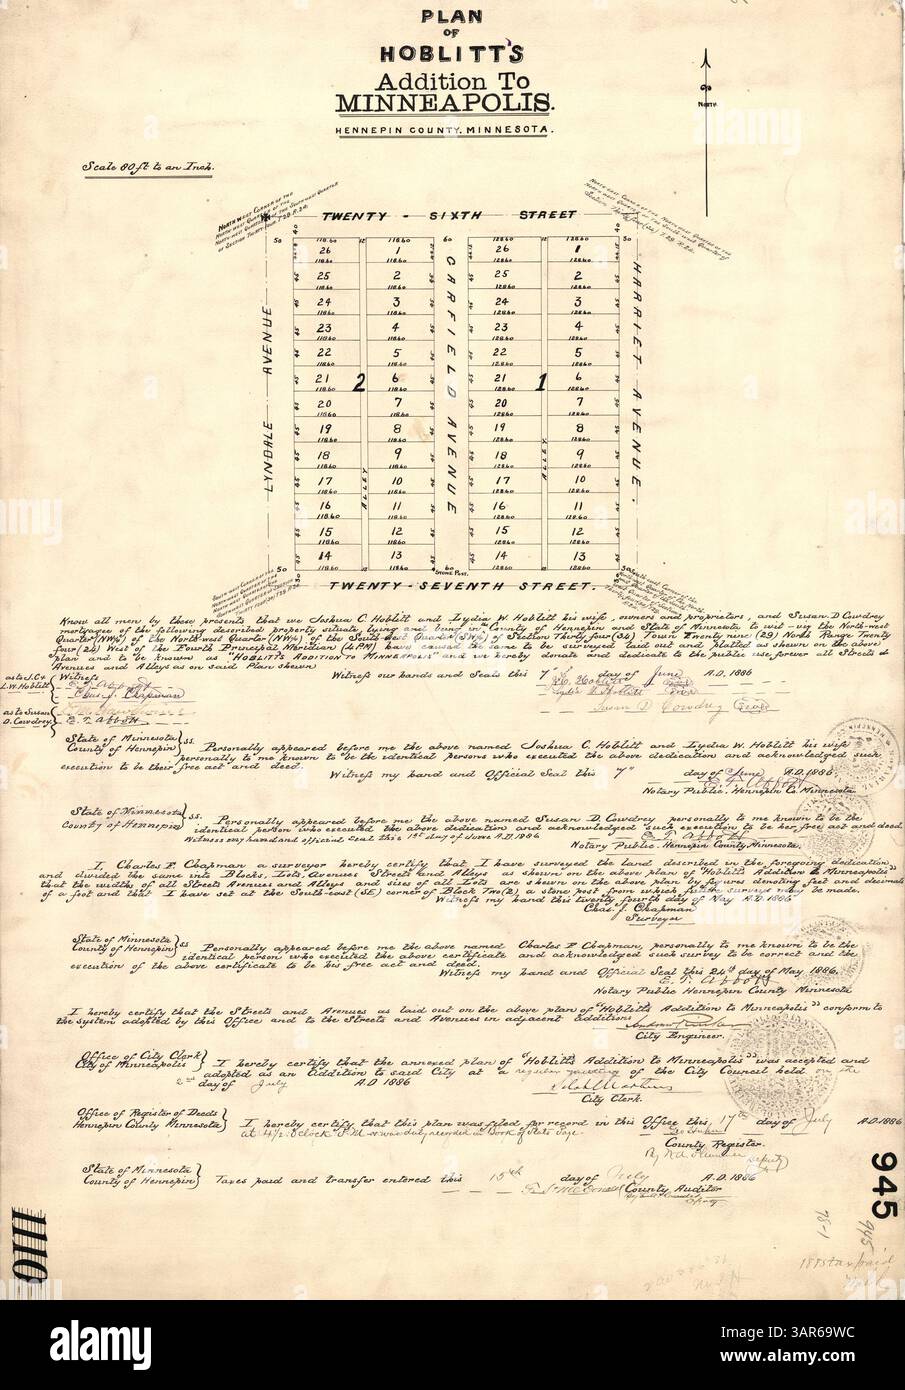 PLAN
OF
HOBLITT'S
Addition To
MINNEAPOLIS.
HENNEPIN COUNTY, MINNESOTA.
NORTH
Scale 80 ft to an Inch.
NORTH WEST CORNER OF THE
NORTH WEST QUARTER OF THE
NORTH-WEST QUARTER OF THE SOUTH-WEST QUARTER
OF SECTION THIRTY-FOUR T 29 R. 24.
TWENTY - SIXTH STREET
50 118.60 12 118.60 60 128.60 12 128.60 50
26 1 26 1
118.60 118.60 128.60 128.60
25 2 25 2
118.60 118.60 128.60 128.60
24 3 24 3
118.60 118.60 128.60 128.60
23 4 23 4
118.60 118.60 128.60 128.60
22 5 22 5
118.60 118.60 128.60 128.60
21 2 6 21 1 6
118.60 118.60 128.60 128.60
20 7 20 7
118.60 118.60 128.60 128.60
19 8 19 8
118.60 118.60 128.60 128.60
18 9 18 9
118.60 118.60 128.60 128.60
17 10 17 10
118.60 118.60 128.60 128.60
16 11 16 11
118.60 118.60 128.60 128.60
15 12 15 12
118.60 118.60 128.60 128.60
14 13 14 13
50 118.60 12 118.60 60 128.60 12 128.60 50
LYNDALE AVENUE
ALLEY
GARFIELD AVENUE
ALLEY
HARRIET AVENUE.
STONE POST.
TWENTY-SEVENTH STREET.
Know all men by these presents that we Joshua C. Hoblitt and Lydia W. Hoblitt his wife, owners and proprietors, and Susan D. Cowdrey
mortgagee of the following described property situate lying and being in the County of Hennepin and State of Minnesota to wit - viz the North-west
Quarter (NW¼) of the North-west Quarter (NW¼) of the South-west Quarter (SW¼) of Section Thirty four (34) Town Twenty nine (29) North Range Twenty
four (24) West of the Fourth Principal Meridian (4 PM) have caused the same to be surveyed laid out and platted as shown on the above
plan and to be known as "HOBLITT'S ADDITION TO MINNEAPOLIS" and we hereby donate and dedicate to the public use forever all Streets
Avenues and Alleys on said Plan shewn
as to J. C. &
L. W. Hoblitt
Witness
E. T. Abbott
Chas. F. Chapman
Witness our hands and Seals this 7" day of June A.D. 1886
Lydia W. Hoblitt
Susan D Cowdrey
as to Susan
D. Cowdrey
E. T. Abbott
State of Minnesota
County of Hennepin
ss. Personally appeared before me the above named Joshua C. Hoblitt and Lydia W. Hoblitt his wife
personally to me known to be the identical persons who executed the above dedication and acknowledged such
execution to be their free act and deed.
Witness my hand and Official Seal this 7" day of June A.D. 1886.
E. T. Abbott
Notary Public. Hennepin Co. Minnesota
State of Minnesota
County of Hennepin
ss. Personally appeared before me the above named Susan D. Cowdrey personally to me known to be the
identical person who executed the above dedication and acknowledged such execution to be her free act and deed
Witness my hand and official seal this 1st day of June A.D. 1886
E. T. Abbott
Notary Public. Hennepin County. Minnesota.
I, Charles F. Chapman a surveyor hereby certify that I have surveyed the land described in the foregoing dedication
and divided the same into Blocks, Lots, Avenues Streets and Alleys as shown on the above plan of Hoblitt's Addition to Minneapolis
that the widths of all Streets Avenues and Alleys and sizes of all Lots are shewn on the above plan by figures denoting feet and decimals
of a foot and that I have set at the South-east (SE) corner of Block Two (2) a stone post from which future surveys may be made.
Witness my hand this twenty fourth day of May A.D. 1886
Chas. F. Chapman
Surveyor
State of Minnesota
County of Hennepin
ss Personally appeared before me the above named Charles F. Chapman, personally to me known to be the
identical person who executed the above certificate and acknowledged such survey to be correct and the
execution of the above certificate to be his free act and deed.
Witness my hand and Official Seal this 24th day of May 1886.
E. T. Abbott
Notary Public Hennepin County Minnesota
I hereby certify that the Streets and Avenues as laid out on the above plan of "Hoblitt's Addition to Minneapolis" conform to
the system adopted by this Office and to the Streets and Avenues in adjacent additions
City Engineer.
Office of City Clerk
City of Minneapolis
I hereby certify that the annexed plan of "Hoblitt's Addition to Minneapolis" was accepted and
adopted as an Addition to said City at a regular meeting of the City Council held on the
2nd day of July A.D 1886
City Clerk.
Office of Register of Deeds
Hennepin County Minnesota
I hereby certify that this plan was filed for record in this Office this 17th day of July A.D. 1886
at 4½ O'Clock P.M & was duly recorded in Book of Plats page
County Register.
Deputy
State of Minnesota
County of Hennepin
Taxes paid and transfer entered this 15th day of July A.D. 1886
County Auditor
945
1110
945
78-1
1885 tax paid
alamy
Image ID: 3AR69WC
www.alamy.com